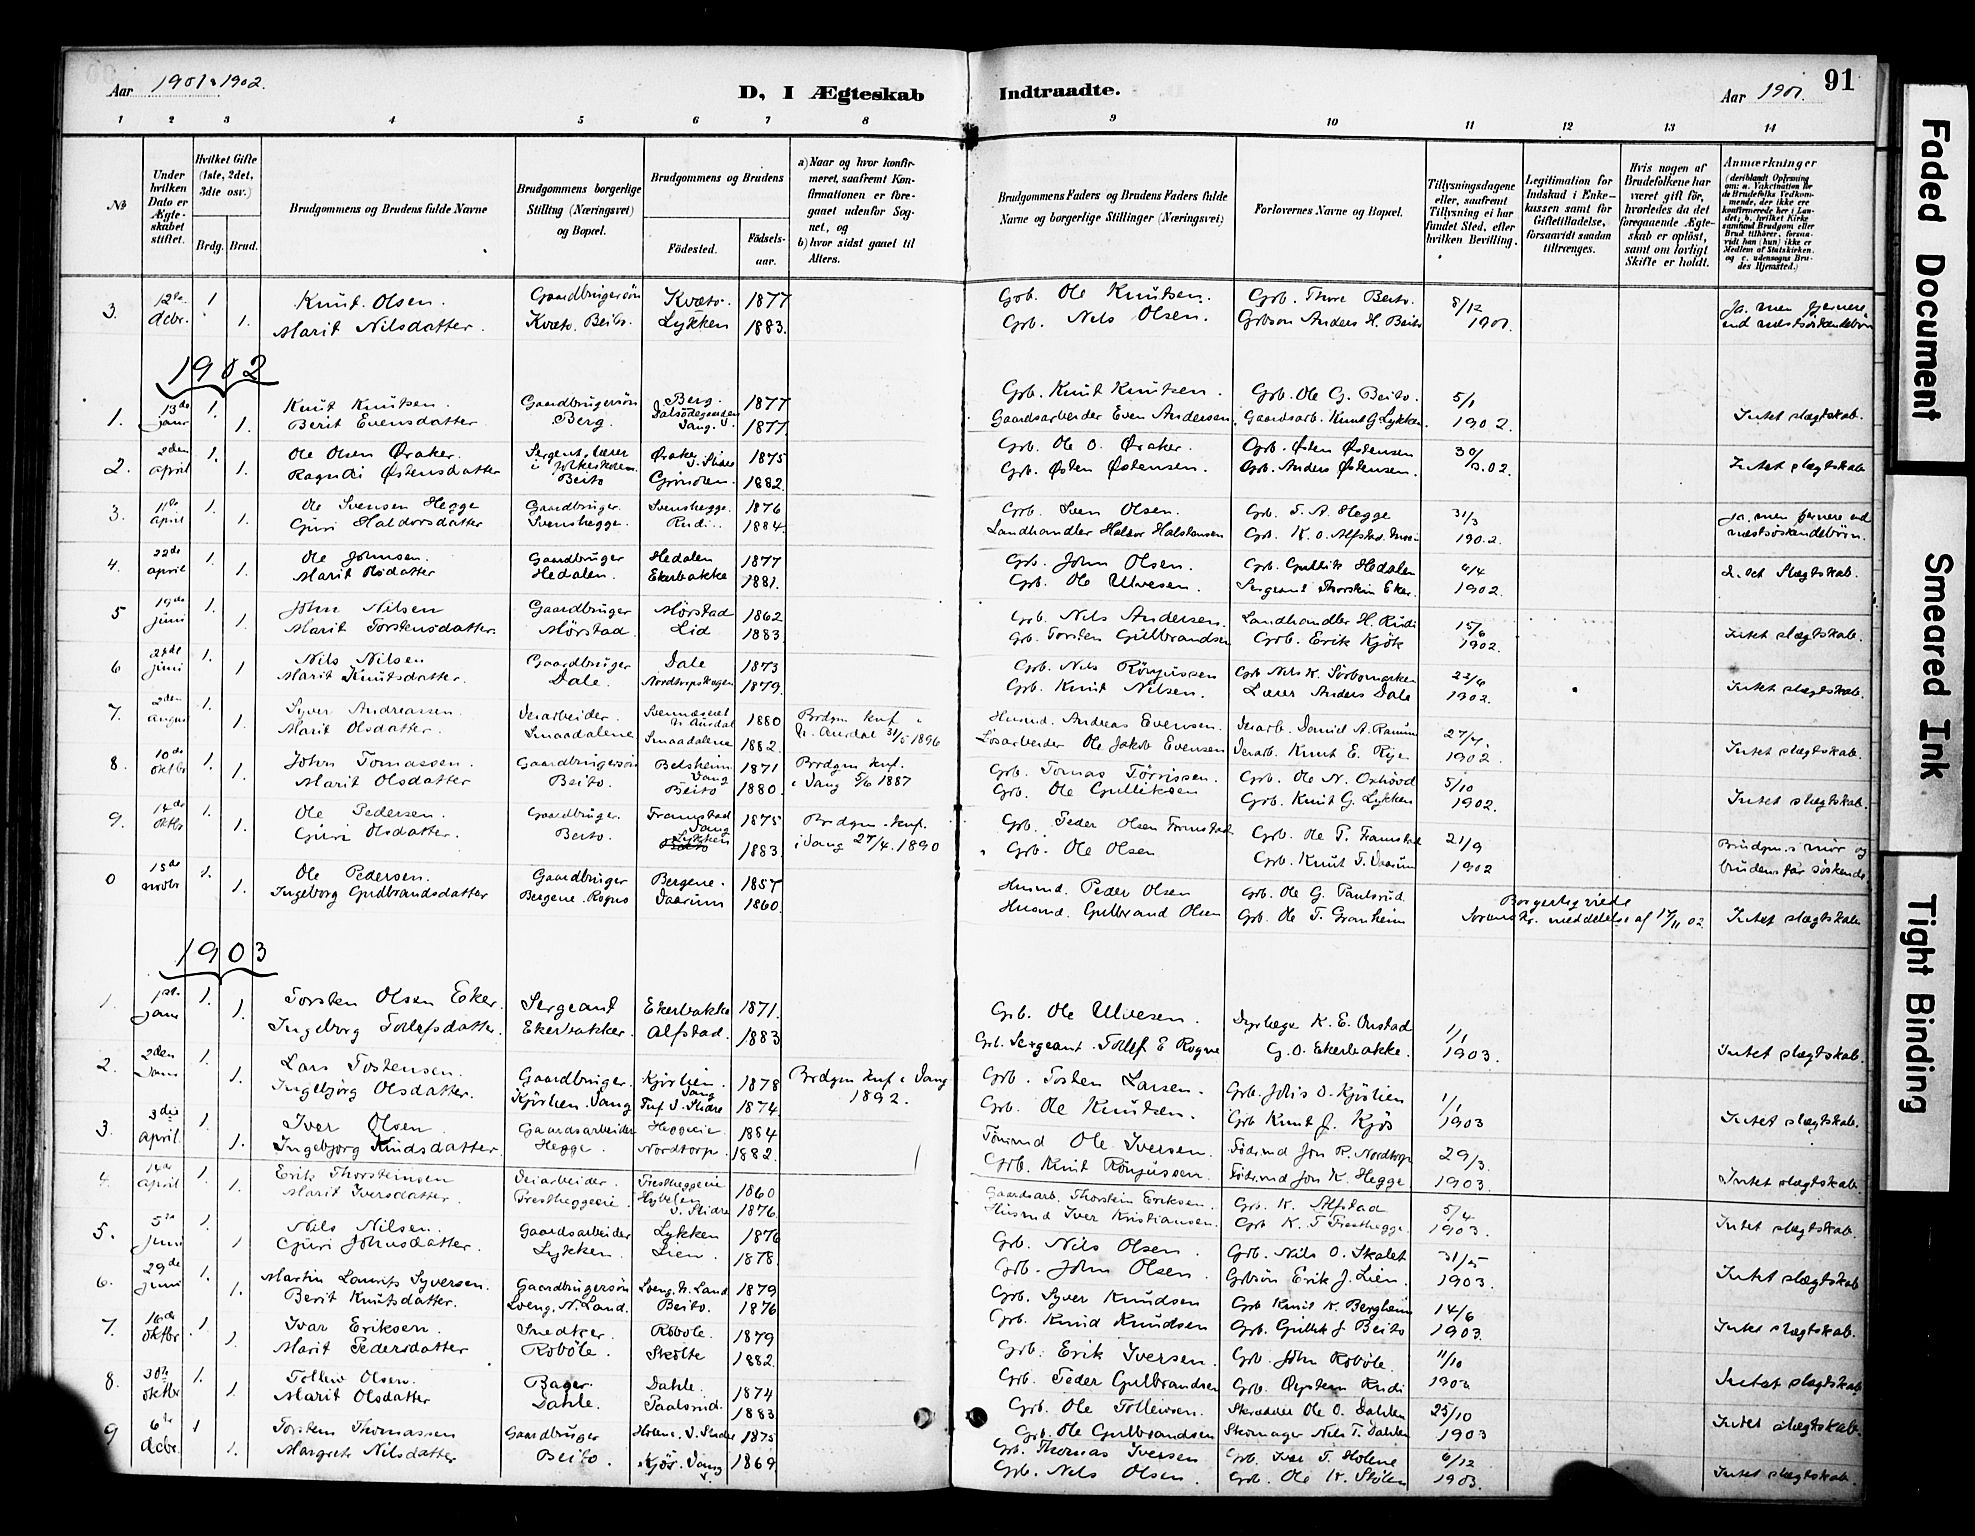 Aar 1901 & 1902.
D, I Ægteskab
Indtraadte.
Aar 1901.
91
1 2 3 4 5 6 7 8 9 10 11 12 13 14
No
Under hvilken Dato er Ægteskabet stiftet.
Hvilket Gifte (1ste, 2det, 3die osv.)
Brdg. Brud.
Brudgommens og Brudens fulde Navne
Brudgommens borgerlige Stilling (Næringsvei) og Bopæl.
Brudgommens og Brudens
Födested.
Födselsaar.
a) Naar og hvor konfirmeret, saafremt Konfirmationen er foregaaet udenfor Sognet, og
b) hvor sidst gaaet til Alters.
Brudgommens Faders og Brudens Faders fulde Navne og borgerlige Stillinger (Næringsvei)
Forlovernes Navne og Bopæl.
Tillysningsdagene eller, saafremt Tillysning ei har fundet Sted, efter hvilken Bevilling.
Legitimation for Indskud i Enkekassen samt for Giftetilladelse, forsaavidt saadan tiltrænges.
Hvis nogen af Brudefolkene har været gift för, hvorledes da det foregaaende Ægteskab er oplöst, samt om lovligt Skifte er holdt.
Anmærkninger (deriblandt Oplysning om: a. Vakcination for de Brudefolks Vedkommende, der ikke ere konfirmerede her i Landet; b. hvilket Kirkesamfund Brudgom eller Brud tilhörer, forsaavidt han (hun) ikke er Medlem af Statskirken. og c. udensogns Brudes Hjemsted.)
3. 12te dcbr. 1 Knut Olsen. Gaardbrugersön Kvæto. 1877 Grb. Ole Knutsen. Grb. Thore Beito. 8/12 Ja. men fjernere
1. Marit Nilsdatter. Kvæto. Beito. Lykken 1883. Grb. Nils Olsen. Grbsøn Anders H. Beito 1901. end næstsöskendebörn
1902
1. 13de janr 1. Knut Knutsen. Gaardbrugersön Berg. 1877 Grb. Knut Knutsen. Grb. Ole G. Beito. 5/1
1. Berit Evensdatter Berg. Vang. 1877. Gaardsarbeider Even Andersen. Gaardsarb. Knut G. Lykken. 1902. Intet slægtskab.
2. 2den april 1. Ole Olsen Øraker. Sergent, lærer Øraker V. Slidre 1875 Grb. Ole O. Øraker. Grb. Østen Østensen 30/3.02.
1. Ragndi Østensdatter i folkeskolen. Beito Grinden. 1882. Grb. Østen Østensen. Grb. Anders Østensen. Intet slægtskab
3. 11te april 1. Ole Svensen Hegge Gaardbruger. Svenshegge. 1876 Grb. Sven Olsen. Grb. T. A. Hegge 31/3 Ja. men fjernere end
1. Guri Haldorsdatter Svenshegge. Rudi.. 1884. Landhandler Haldor Halstensen Grb. K. O. Alfstad. 1902. næstsöskendebörn.
4. 22de april 1. Ole Johnsen. Gaardbruger Hedalen 1877 Grb. John Olsen. Grb. Gullik Hedalen 6/4
1. Marit Olsdatter Hedalen. Ekerbakke 1881. Grb. Ole Ulvesen. Sergeant Thorstein Eker. 1902. Slægtskab.
5 19de juni 1. John Nilsen Gaardbruger Mörstad 1862 Grb. Nils Andersen. Landhandler H. Rudi 15/6
1. Marit Torstensdatter. Mörstad. Lid 1883. Grb. Torsten Gulbrandsen Grb. Erik Kjök 1902. Intet slægtskab.
6 juni 1. Nils Nilsen Gaardbruger Dale 1873 Grb. Nils Röngussen Grb Nils K. Sörbomarken 22/6
1 Marit Knutsdatter. Dale. Nordtorpshagen 1879. Grb. Knut Nilsen. Lærer Anders Dale 1902. Intet slægtskab.
7. 2den august 1. Syver Andreassen. Veiarbeider. N. Aurdal 1880 Brdgm knf. i Husmd. Andreas Evensen. Veiarb. David A. 27/7.
1. Marit Olsdatter. Smaadalene Smaadalene 1882. N. Aurdal 31/5 1896 Lösarbeider Ole Jakob Evensen Veiarb. Knut E. Rye. 1902. Intet slægtskab.
8. 10de oktbr 1. John Tomassen. Gaardbrugersön Belsheim Vang 1871 Brdgm knf. Grb. Tomas Törrissen. Grb. Ole N. Oxhövd 5/10
1. Marit Olsdatter. Beito. Beito 1880. i Vang 5/6 1887 Grb. Ole Gulliksen Grb. Knut G. Lykken 1902. Intet slægtskab.
9. 14de oktbr 1. Ole Pedersen. Gaardbruger. Framstad Vang 1875 Brdgm. knf. Grb. Peder Olsen Framstad Grb. Ole P. Framstad 21/9 Brudgm.s mor og
1. Guri Olsdatter. Beito. Lykken 1883. i Vang 27/4. 1890 Grb. Ole Olsen Grb. Knut T. 1902 brudens far söskende.
0 15de novbr 1. Ole Pedersen. Gaardbruger Bergene. 1857 Husmd. Peder Olsen Grb. Ole G. Paulsrud Borgerlig viede
1. Ingeborg Gudbrandsdatter Bergene. Rogne 1860. Husmd. Gulbrand Olsen Grb. Ole T. Granheim meddelelse af 17/11 02 Intet slægtskab
1903
1. 1st. janr 1. Torsten Olsen Eker Sergeant Ekerbakke 1871. Grb. Ole Ulvesen. Dyrlæge K. E. Onstad 1/1
1. Ingeborg Tollefsdatter. Ekerbakker. Alfstad. 1883 Grb. Sergeant. Tollef E Rogne G. O. Ekerbakke. 1903. Intet slægtskab.
2. 2den Janr 1. Lars Tostensen. Gaardbruger. Kjörlien. Vang 1878 Brdgm knf i Vang 1892. Grb. Tosten Larsen. Grb. Johs O. Kjörlien 1/1
1. Ingebjörg Olsdatter. Kjörlien. Vang V. Slidre 1874 Grb. Ole Knutsen. Grb Knut J. Kjös 1903 Intet slægtskab.
3. 3die april. 1. Iver Olsen Gaardsarbeider Heggeie. 1884 Ole Iversen. Födsmd Jon R. Nordtorp 29/3.
1. Ingebjörg Knudsdatter. Hegge. Nordtorp 1882. Grb. Knut Röngussen Födsmd Jon K. Hegge 1903. Intet slægtskab.
4. 14de april 1. Erik Thorsteinsen Veiarbeider. 1860 Gaardsarb. Thorstein Eriksen. Grb. K. Alfstad 5/4
1. Marit Iversdatter. V. Slidre 1876. Husmd Iver Kristiansen. Grb K. T 1903. Intet slægtskab.
5. 5te juni 1. Nils Nilsen. Gaardsarbeider Lykken 1876 Grb. Nils Olsen Grb. Nils O. Skalet 31/5
1 Guri Johnsdatter. Lykken. Lien. 1878. Grb. John Olsen. Grbsön Erik J. Lien. 1903. Intet slægtskab
6. 29de juni 1. Martin Laurits Syversen. Gaardbrugersön N. Land 1879 Grb. Syver Knudsen Grb Knut K. Bergheim 14/6
1. Berit Knutsdatter. N. Land. Beito. 1876 Grb. Knud Knudsen Grb. Gullik J Beito 1903. Intet slægtskab.
7. 16de oktbr 1. Ivar Eriksen. Snedker Robøle. 1879 Grb. Erik Iversen. Grb. John Robøle. 11/10
1. Marit Pedersdatter Robøle. Skolte 1882. Grb. Peder Gulbrandsen Grb. Øystein Rudi 1903 Intet slægtskab
8. 30te oktbr 1. Tollev Olsen. Bager. Dahle. 1874 Grb. Ole Tollevsen. Skrædder Ole O. Dahlen 25/10
1. Marit Olsdatter Dahle. Paalsrud. 1883 Grb. Ole Gulbrandsen Skomager Nils T. Dahlen 1903 Intet slægtskab.
9 6te dcbr. 1 Torstein Thomassen Gaardbruger V. Slidre 1875 Grb. Thomas Iversen Grb. Iver T. Holene 6/12
1. Margrete Nilsdatter Beito. Kjös. Vang 1869. Grb. Nels Olsen. Grb. Ole K. Stölen 1903. Intet slægtskab.
Faded Document
Smeared Ink
Tight Binding